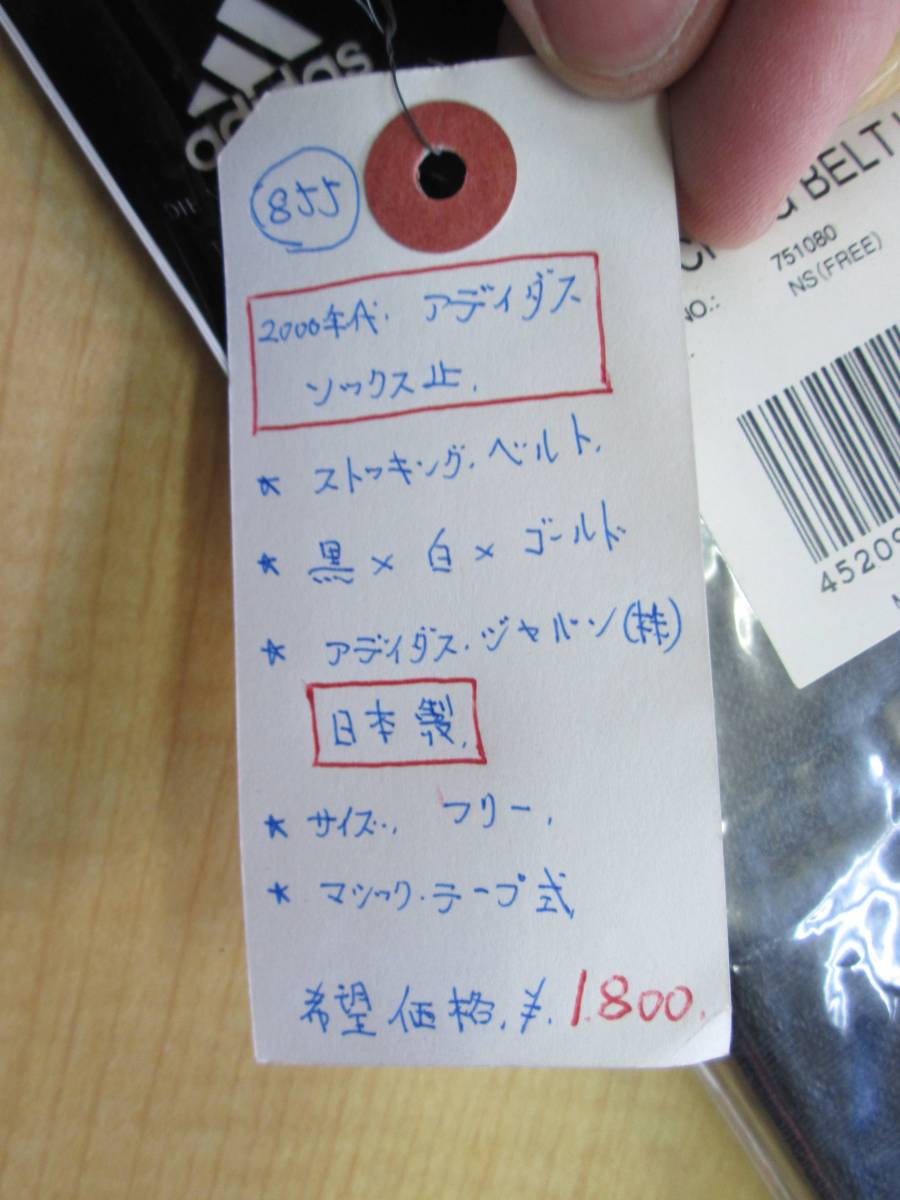 adidas
855
2000年代. アディダス
ソックス止.
★ ストッキング.ベルト.
★ 黒 × 白 × ゴールド
★ アディダス.ジャパン(株)
日本製.
★ サイズ., フリー.
★ マジック.テープ式
希望価格.¥.1.800.
BELT
751080
NO.:
NS(FREE)
45209